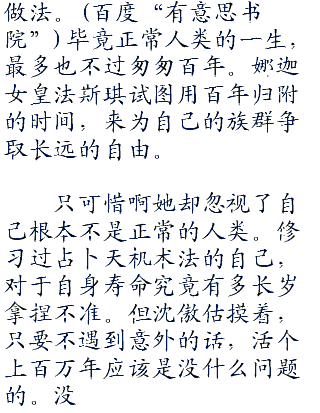 做法。(百度“有意思书
院”)毕竟正常人类的一生,
最多也不过匆匆百年。娜迦
女皇法斯琪试图用百年归附
的时间，来为自己的族群争
取长远的自由。
只可惜啊她却忽视了自
己根本不是正常的人类。修
习过占卜天机术法的自己,
对于自身寿命究竟有多长岁
拿捏不准。但沈傲估摸着，
只要不遇到意外的话，活个
上百万年应该是没什么问题
的。没